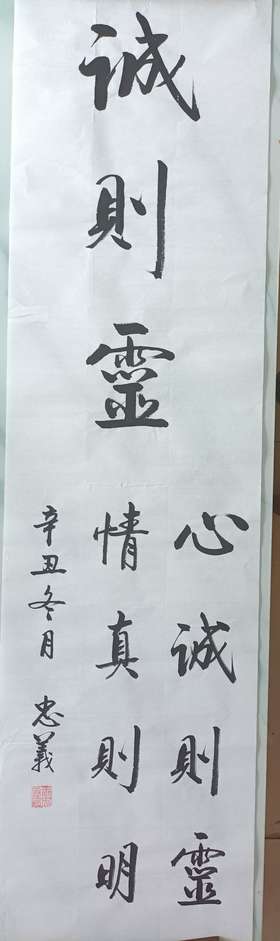 誠則靈
心誠則靈
情真則明
辛丑冬月 忠義